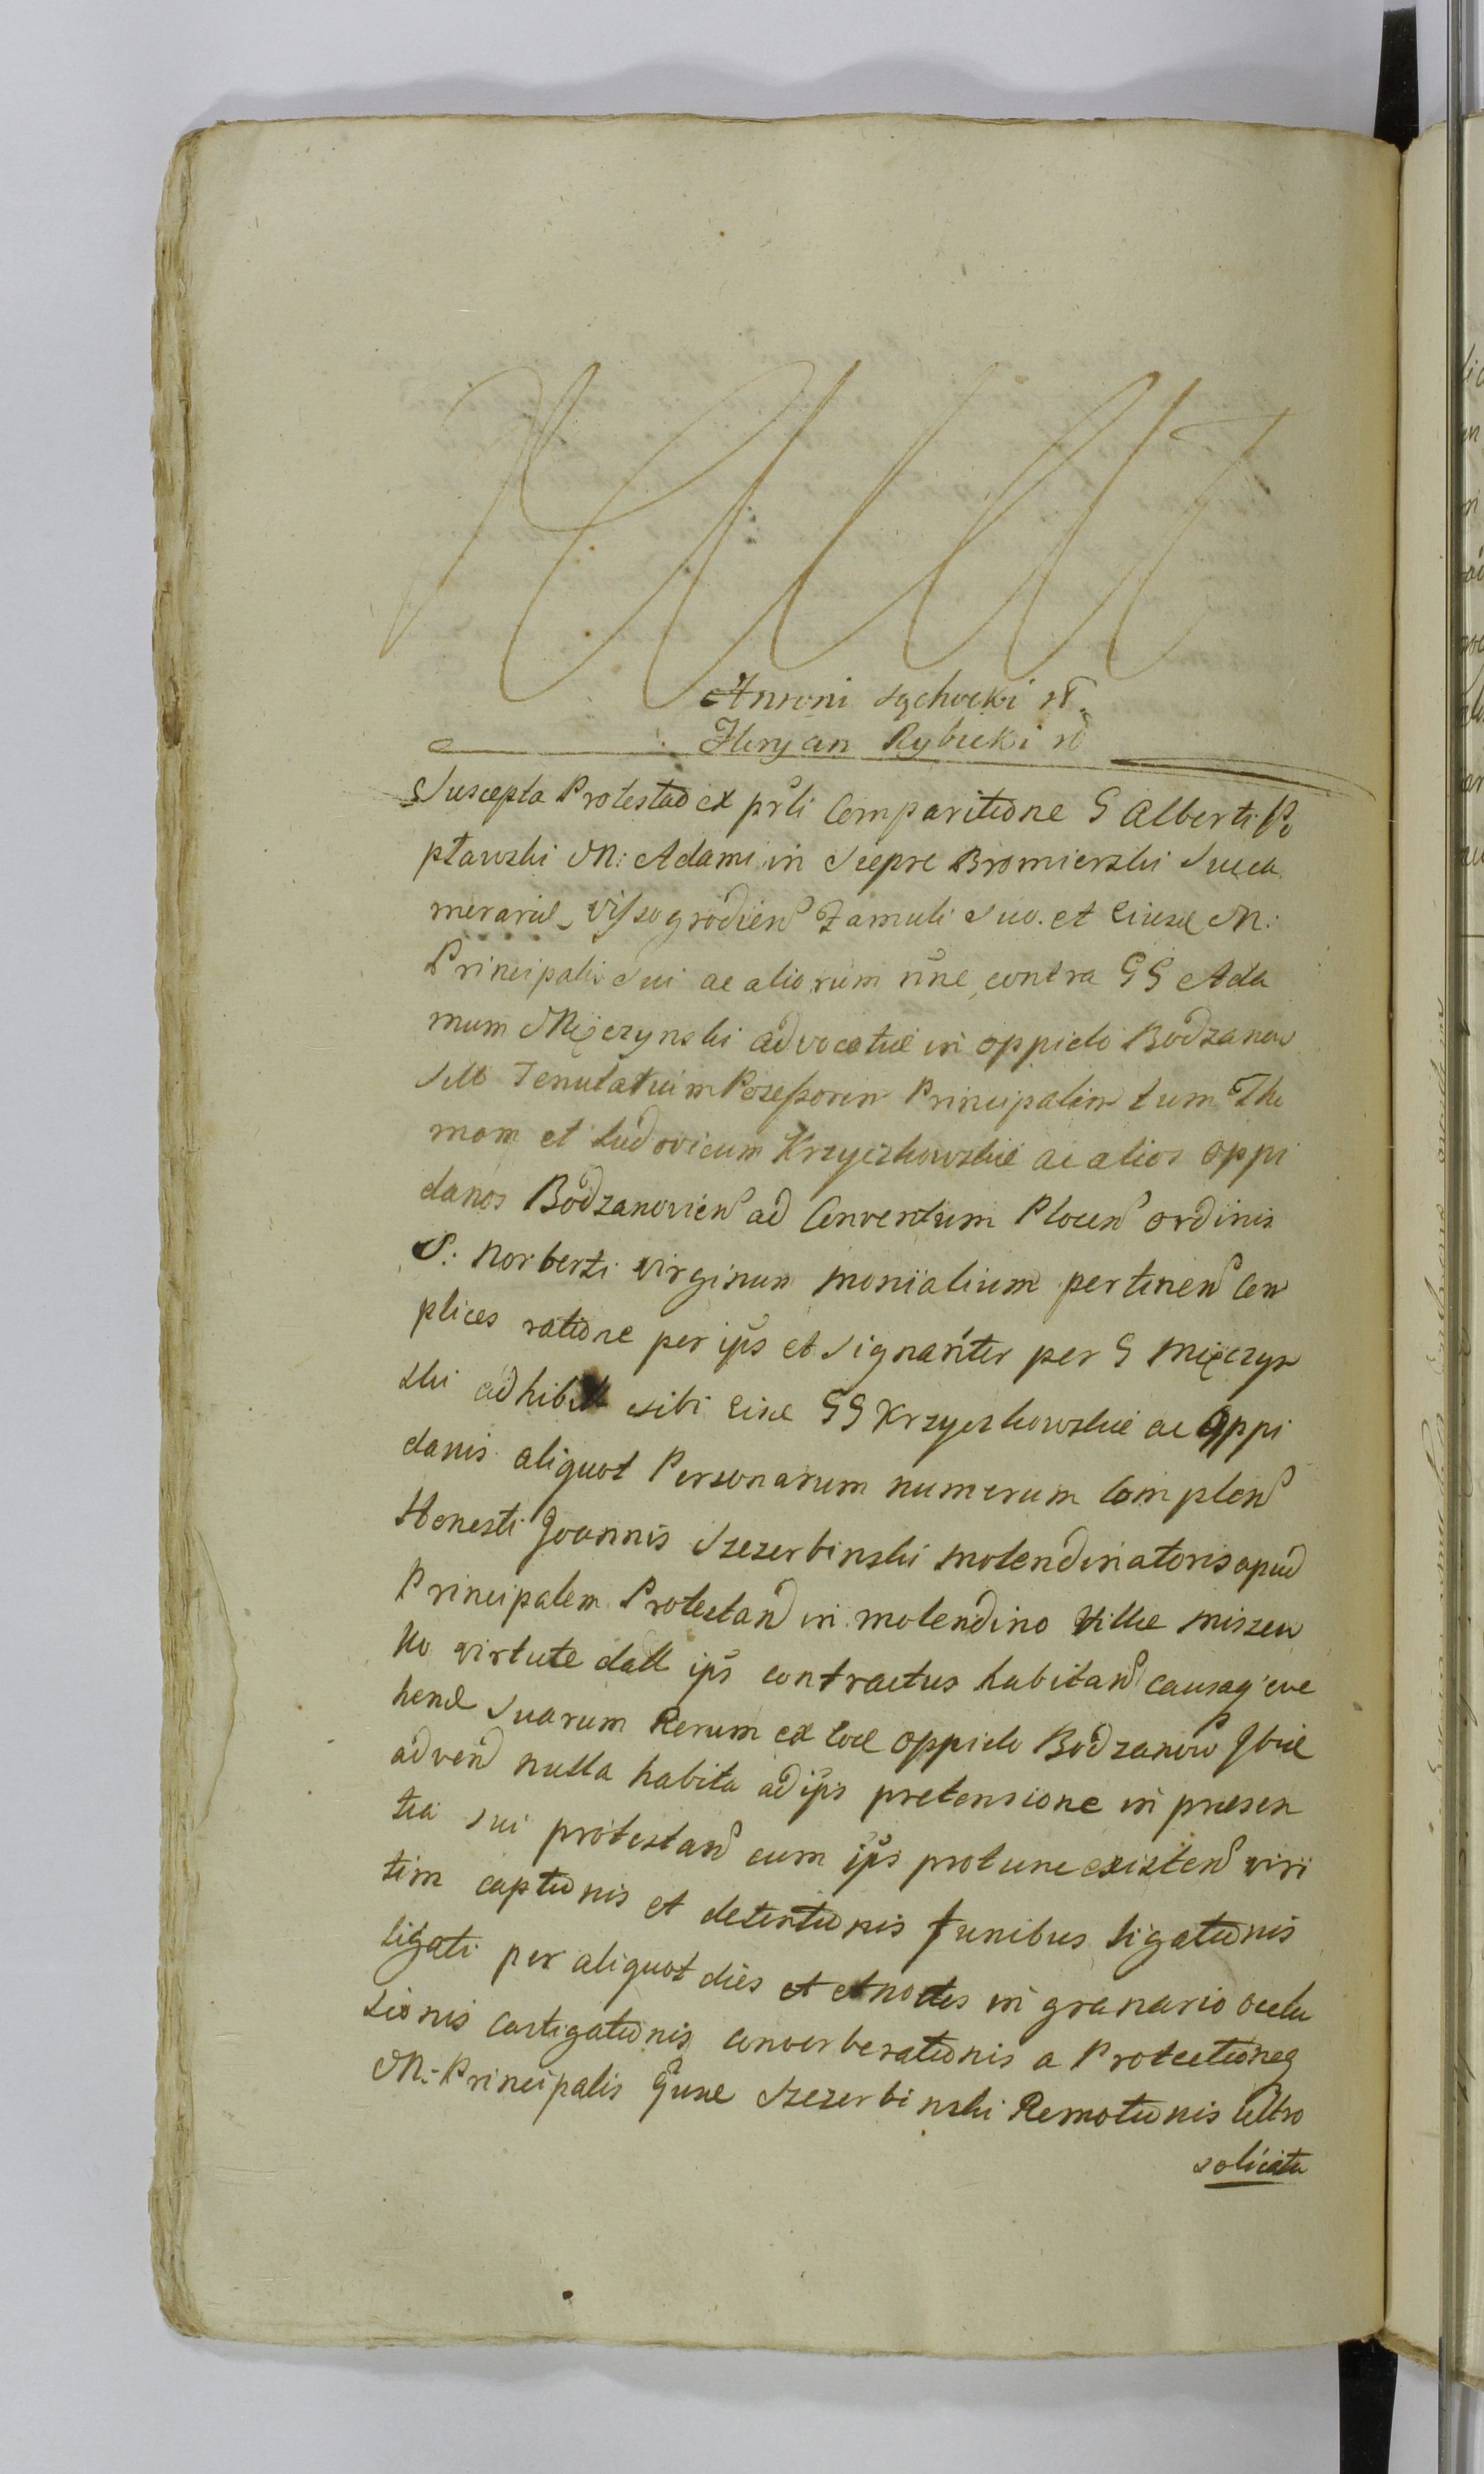 Antoni Sychocki m
Floryan Rybicki m
Suscepta Protestao ex pñli Comparitione G Alberti Po
pławski M: Adami in Seepre Bromierski Succa
merarid Vissogrodien Famuli Suo. et Eiusd M:
Principalis Sui ac aliorum nñe contra GG Ada
mum Mięczynski advocatiæ in oppido Bodzanow
sitt Tenutatum Possessorem Principalem tum Tho
mam et Ludovicum Krzyczkowskie ac alios oppi
danos Bodzanovien ad Conventum Plocen ordinis
S: Norberti virginum monialium pertinen Com
plices ratione per ips et signanter per G Mięczyn
ski adhibitt sibi eisd GG Krzyczkowskie ac oppi
danis aliquot Personarum numerum Complen
Honesti Joannis Szczerbinski molendinatoris apud
Principalem Protestan in molendino Villæ Miszew
ko virtute datt ips contractus habitan causaq eve
hend Suarum Rerum ex eod oppido Bodzanow Ibid
adven nulla habita ad ips pretensione in præsen
tia sui protestan cum ips protunc existen viri
tim captionis et detentionis funibus ligationis
ligati per aliquot dies et et noctes in granario occlu
sionis castigationis converberationis a Protectioneq
M: Principalis Eiusd Szczerbinski Remotionis Ultro
solicita